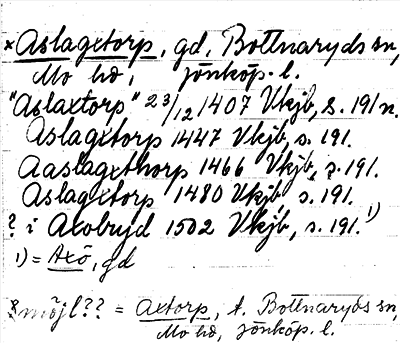 × Aslagxtorp, gd, Bottnaryds sn,
Mo hd, jönköp. l.
"Aslaxtorp" 23/12 1407 Vkjb, s. 191 n.
Aslagxtorp 1447 Vkjb, s. 191.
Aaslagxthorp 1466 Vkjb, s. 191.
Aslagxtorp 1480 Vkjb s. 191.
? i Axobryd 1502 Vkjb, s. 191. 1)
1) = Axö, gd
möjl?? = Axtorp, t. Bottnaryds sn,
Mo hd, jönköp. l.